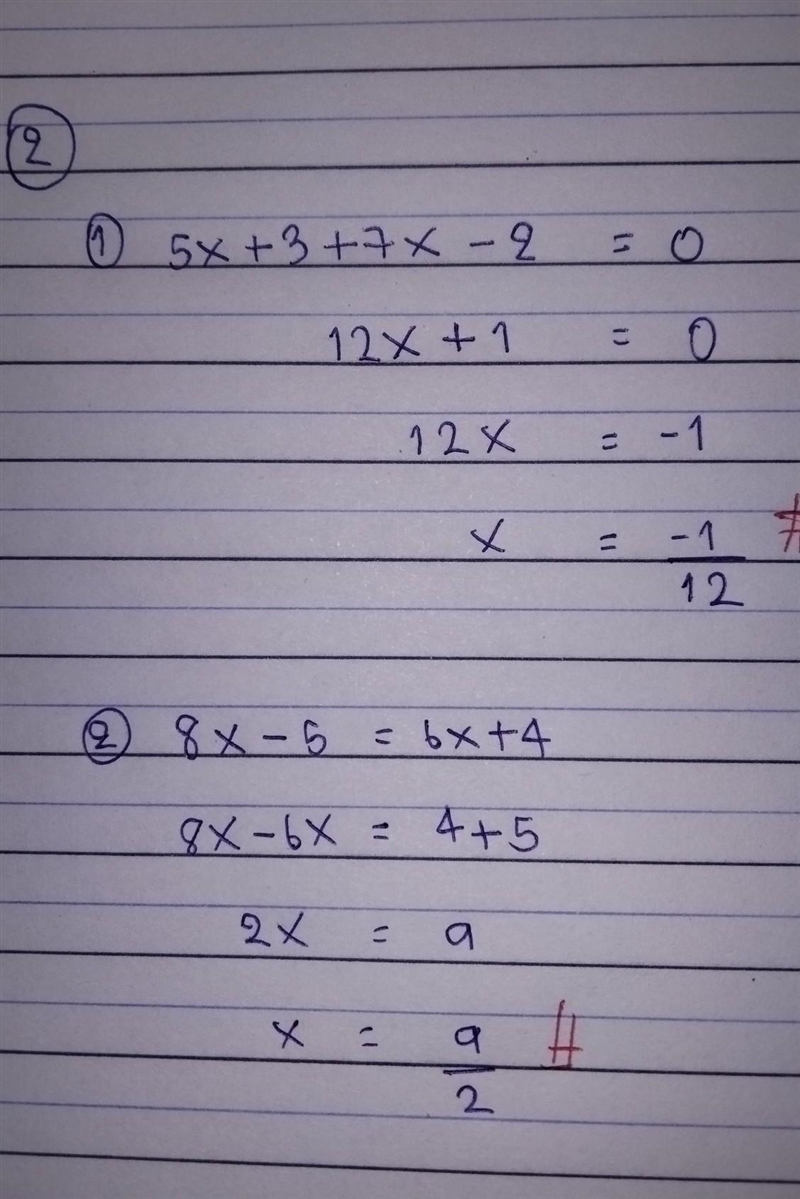 ②
① 5x + 3 + 7x - 2 = 0
12x + 1 = 0
12x = -1
x = -1/12 #
② 8x - 5 = 6x + 4
8x - 6x = 4 + 5
2x = 9
x = 9/2 #